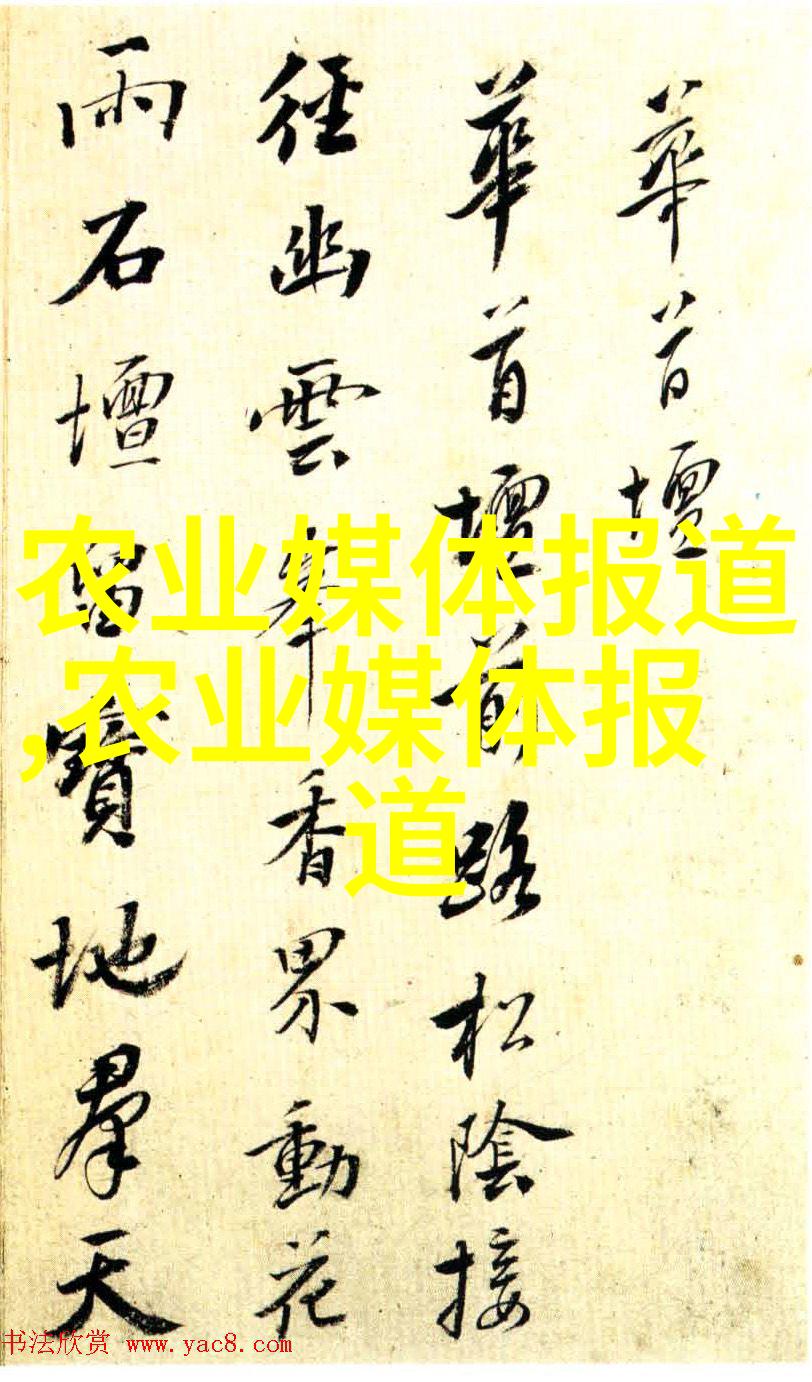 華首壇
華首壇前路松陰接
徑幽雲峯香界動花
雨石壇留寶地羣天
农业媒体报道
,农业媒体报
道
书法欣赏 www.yac8.com